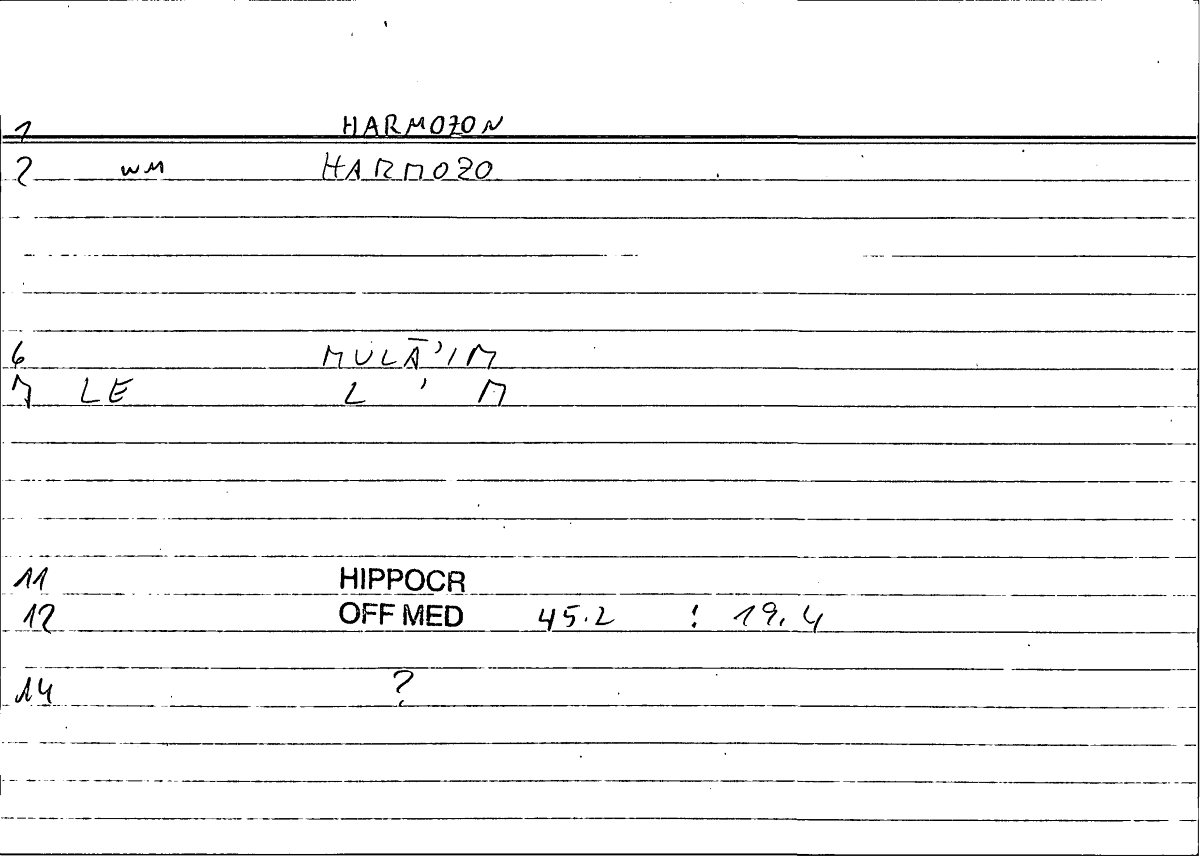 1 HARMOZON
2 WM HARMOZO
6 MULĀ'IM
7 LE L ' M
11 HIPPOCR
12 OFF MED 45.2 : 19.4
14 ?